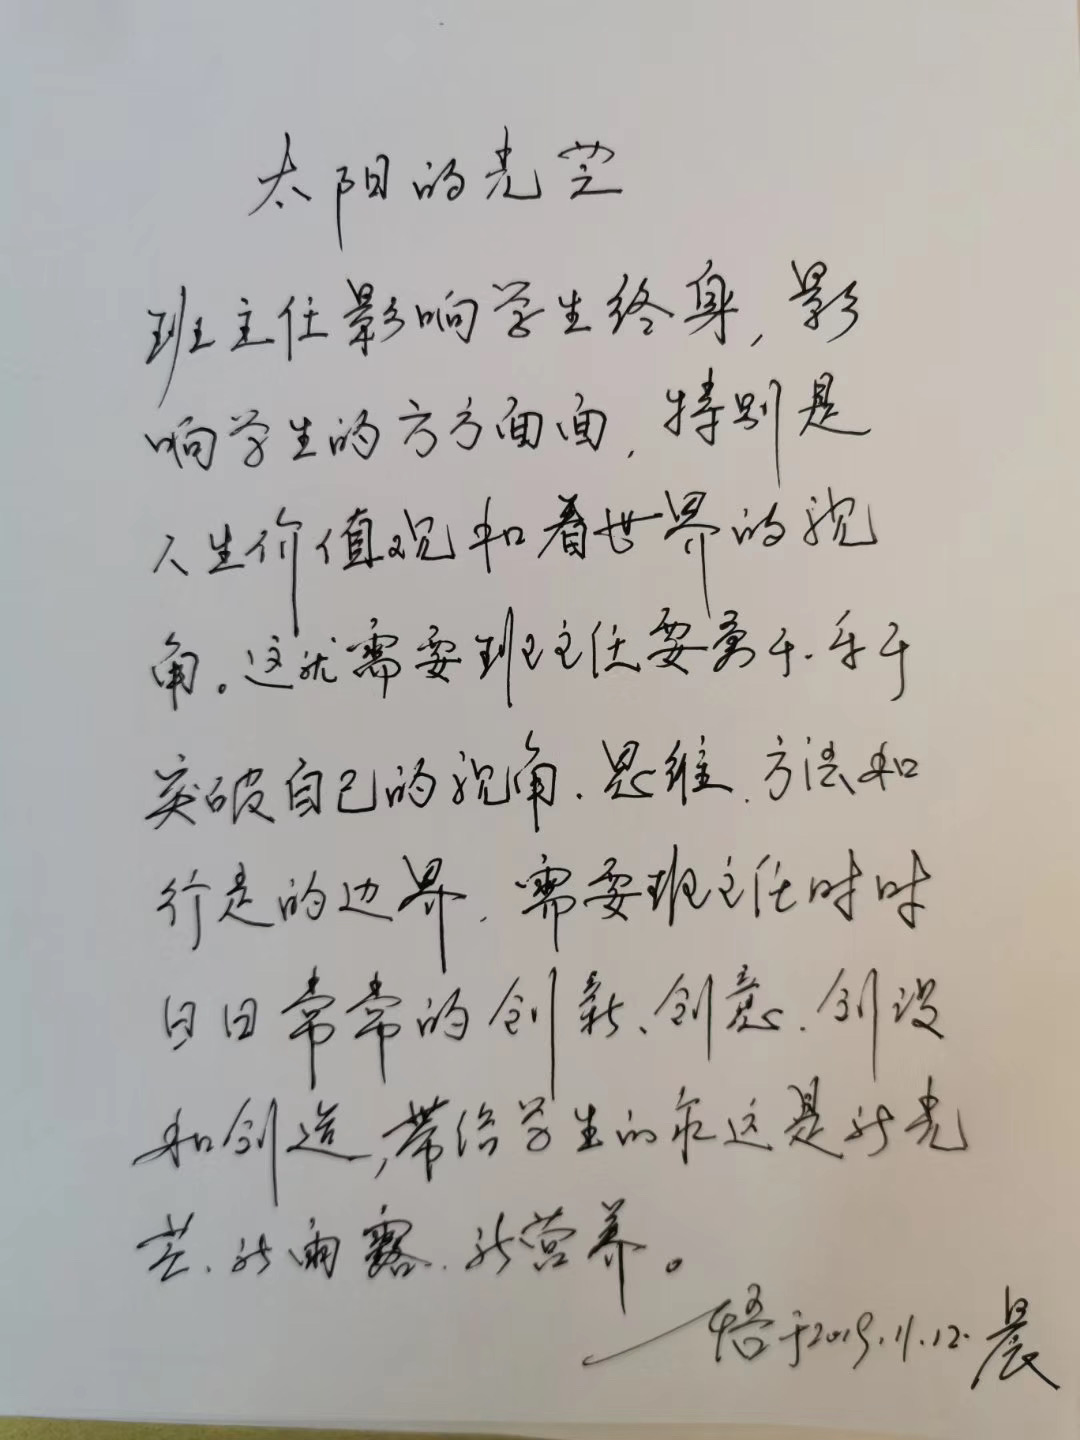 太阳的光芒
班主任影响学生终身,影
响学生的方方面面,特别是
人生价值观和看世界的视
角。这就需要班主任要勇于、乐于
突破自己的视角、思维、方法和
行走的边界,需要班主任时时
日日常常的创新、创意、创设
和创造,带给学生的永远是新光
芒、新雨露、新营养。
——悟于2019.11.12.晨